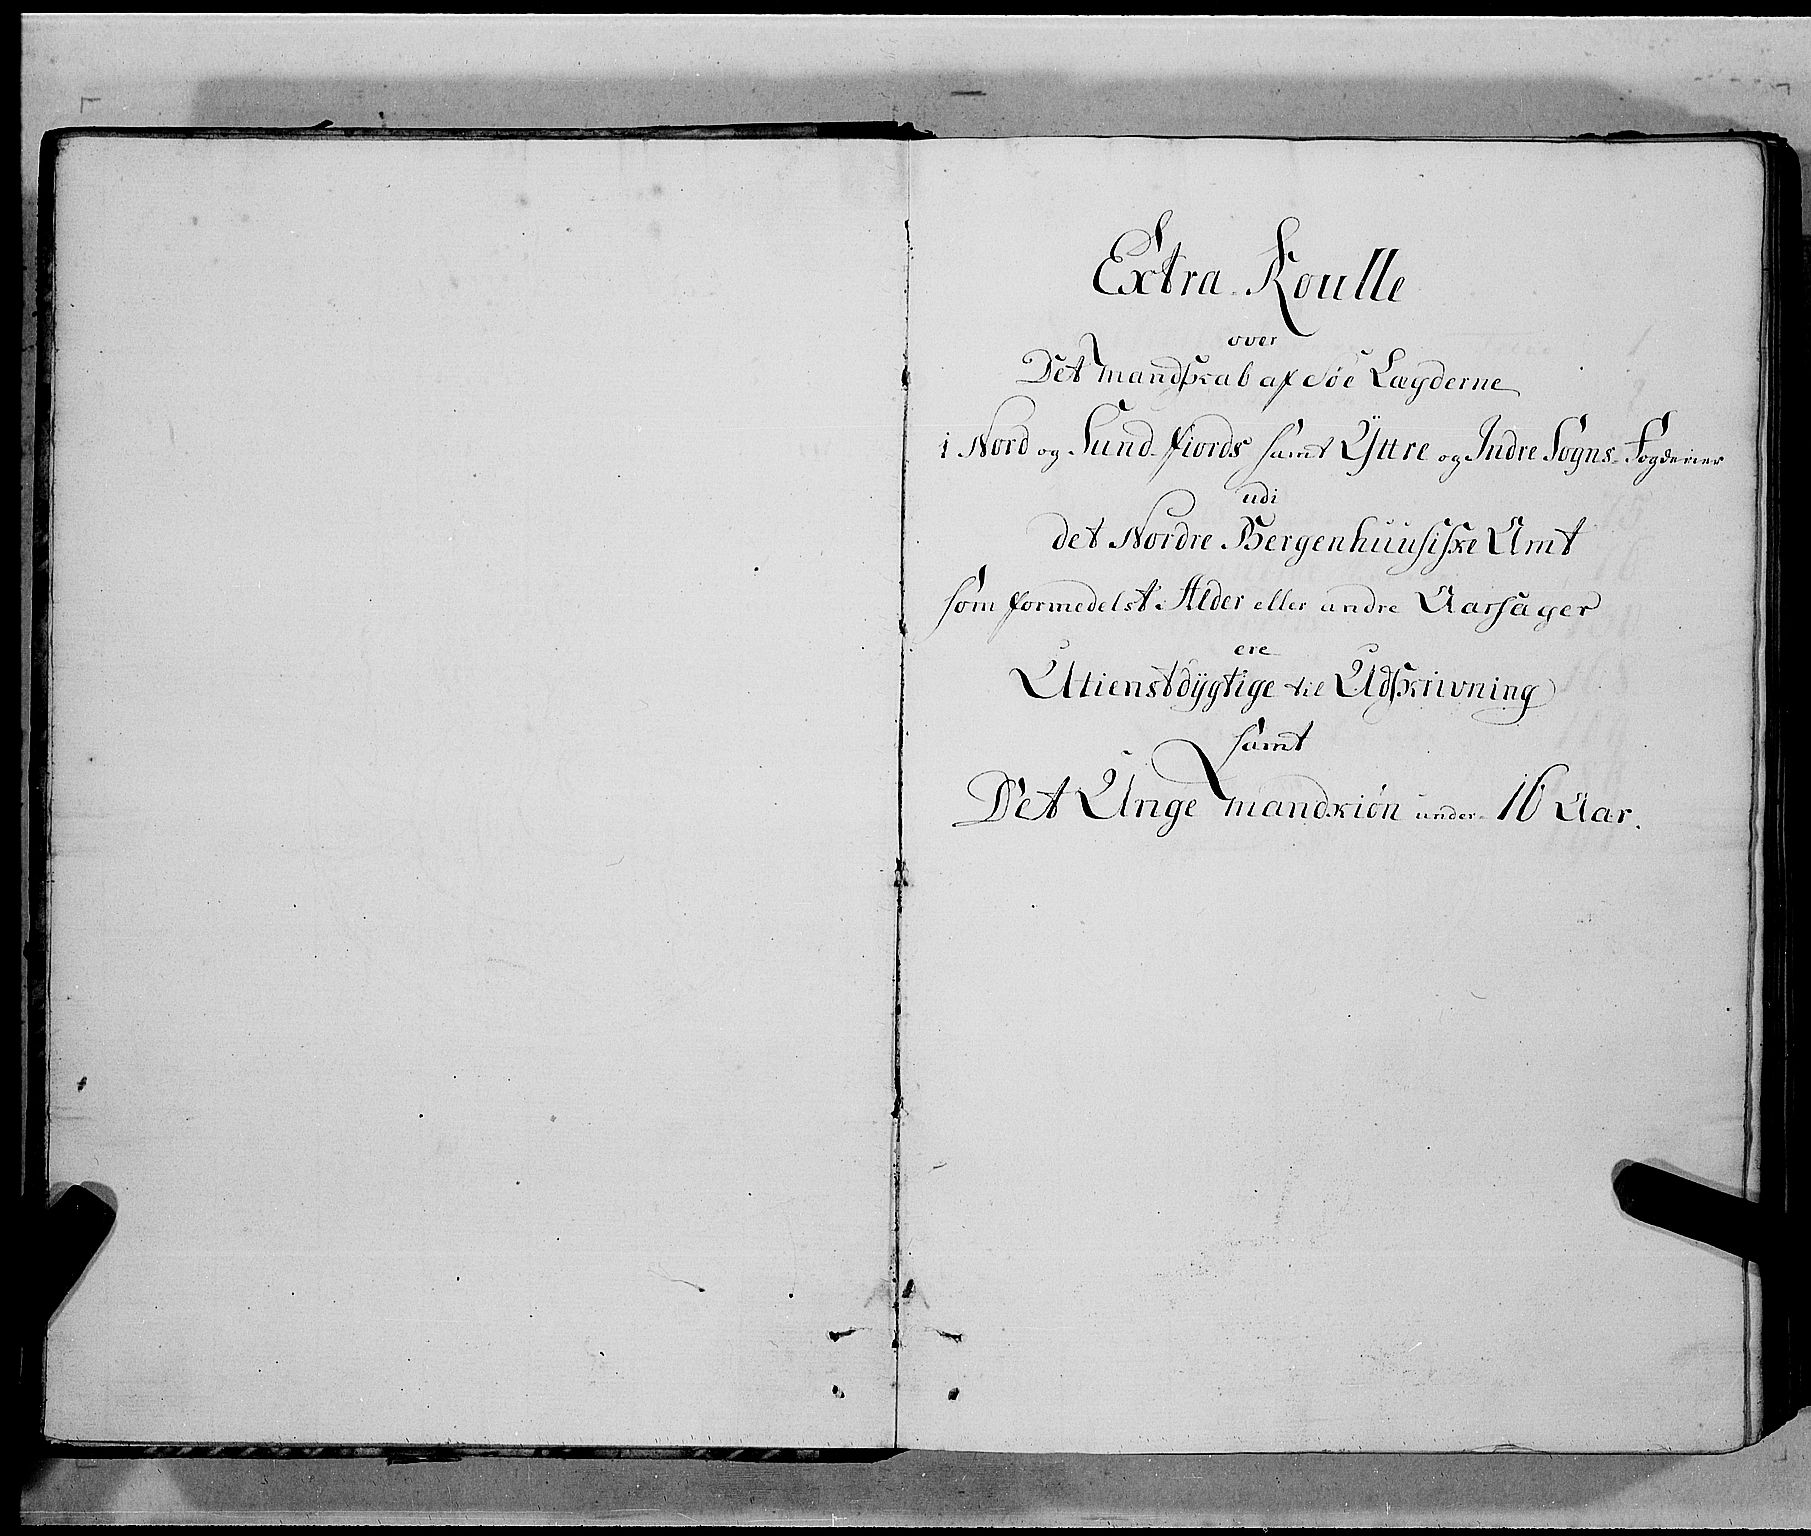 Extra-Roulle
over
Det mandskab af Søe Lægderne
i Nord og Sund-fiords samt Yttre og Indre Sogns-Fogderier
udi
det Nordre Bergenhuusiske Amt
som formedelst Alder eller andre Aarsager
ere
Utienstdygtige til Udskrivning
samt
Det Unge mandkiøn under 16 Aar.